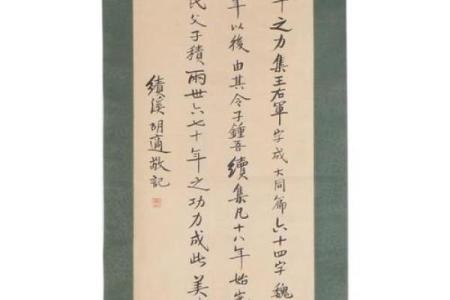 十之力集王右軍字成大同篇六十四字魏
年以後由其令子鍾吾續集凡十八年始
氏父子積兩世六七十年之功力成此美
績溪胡適敬記